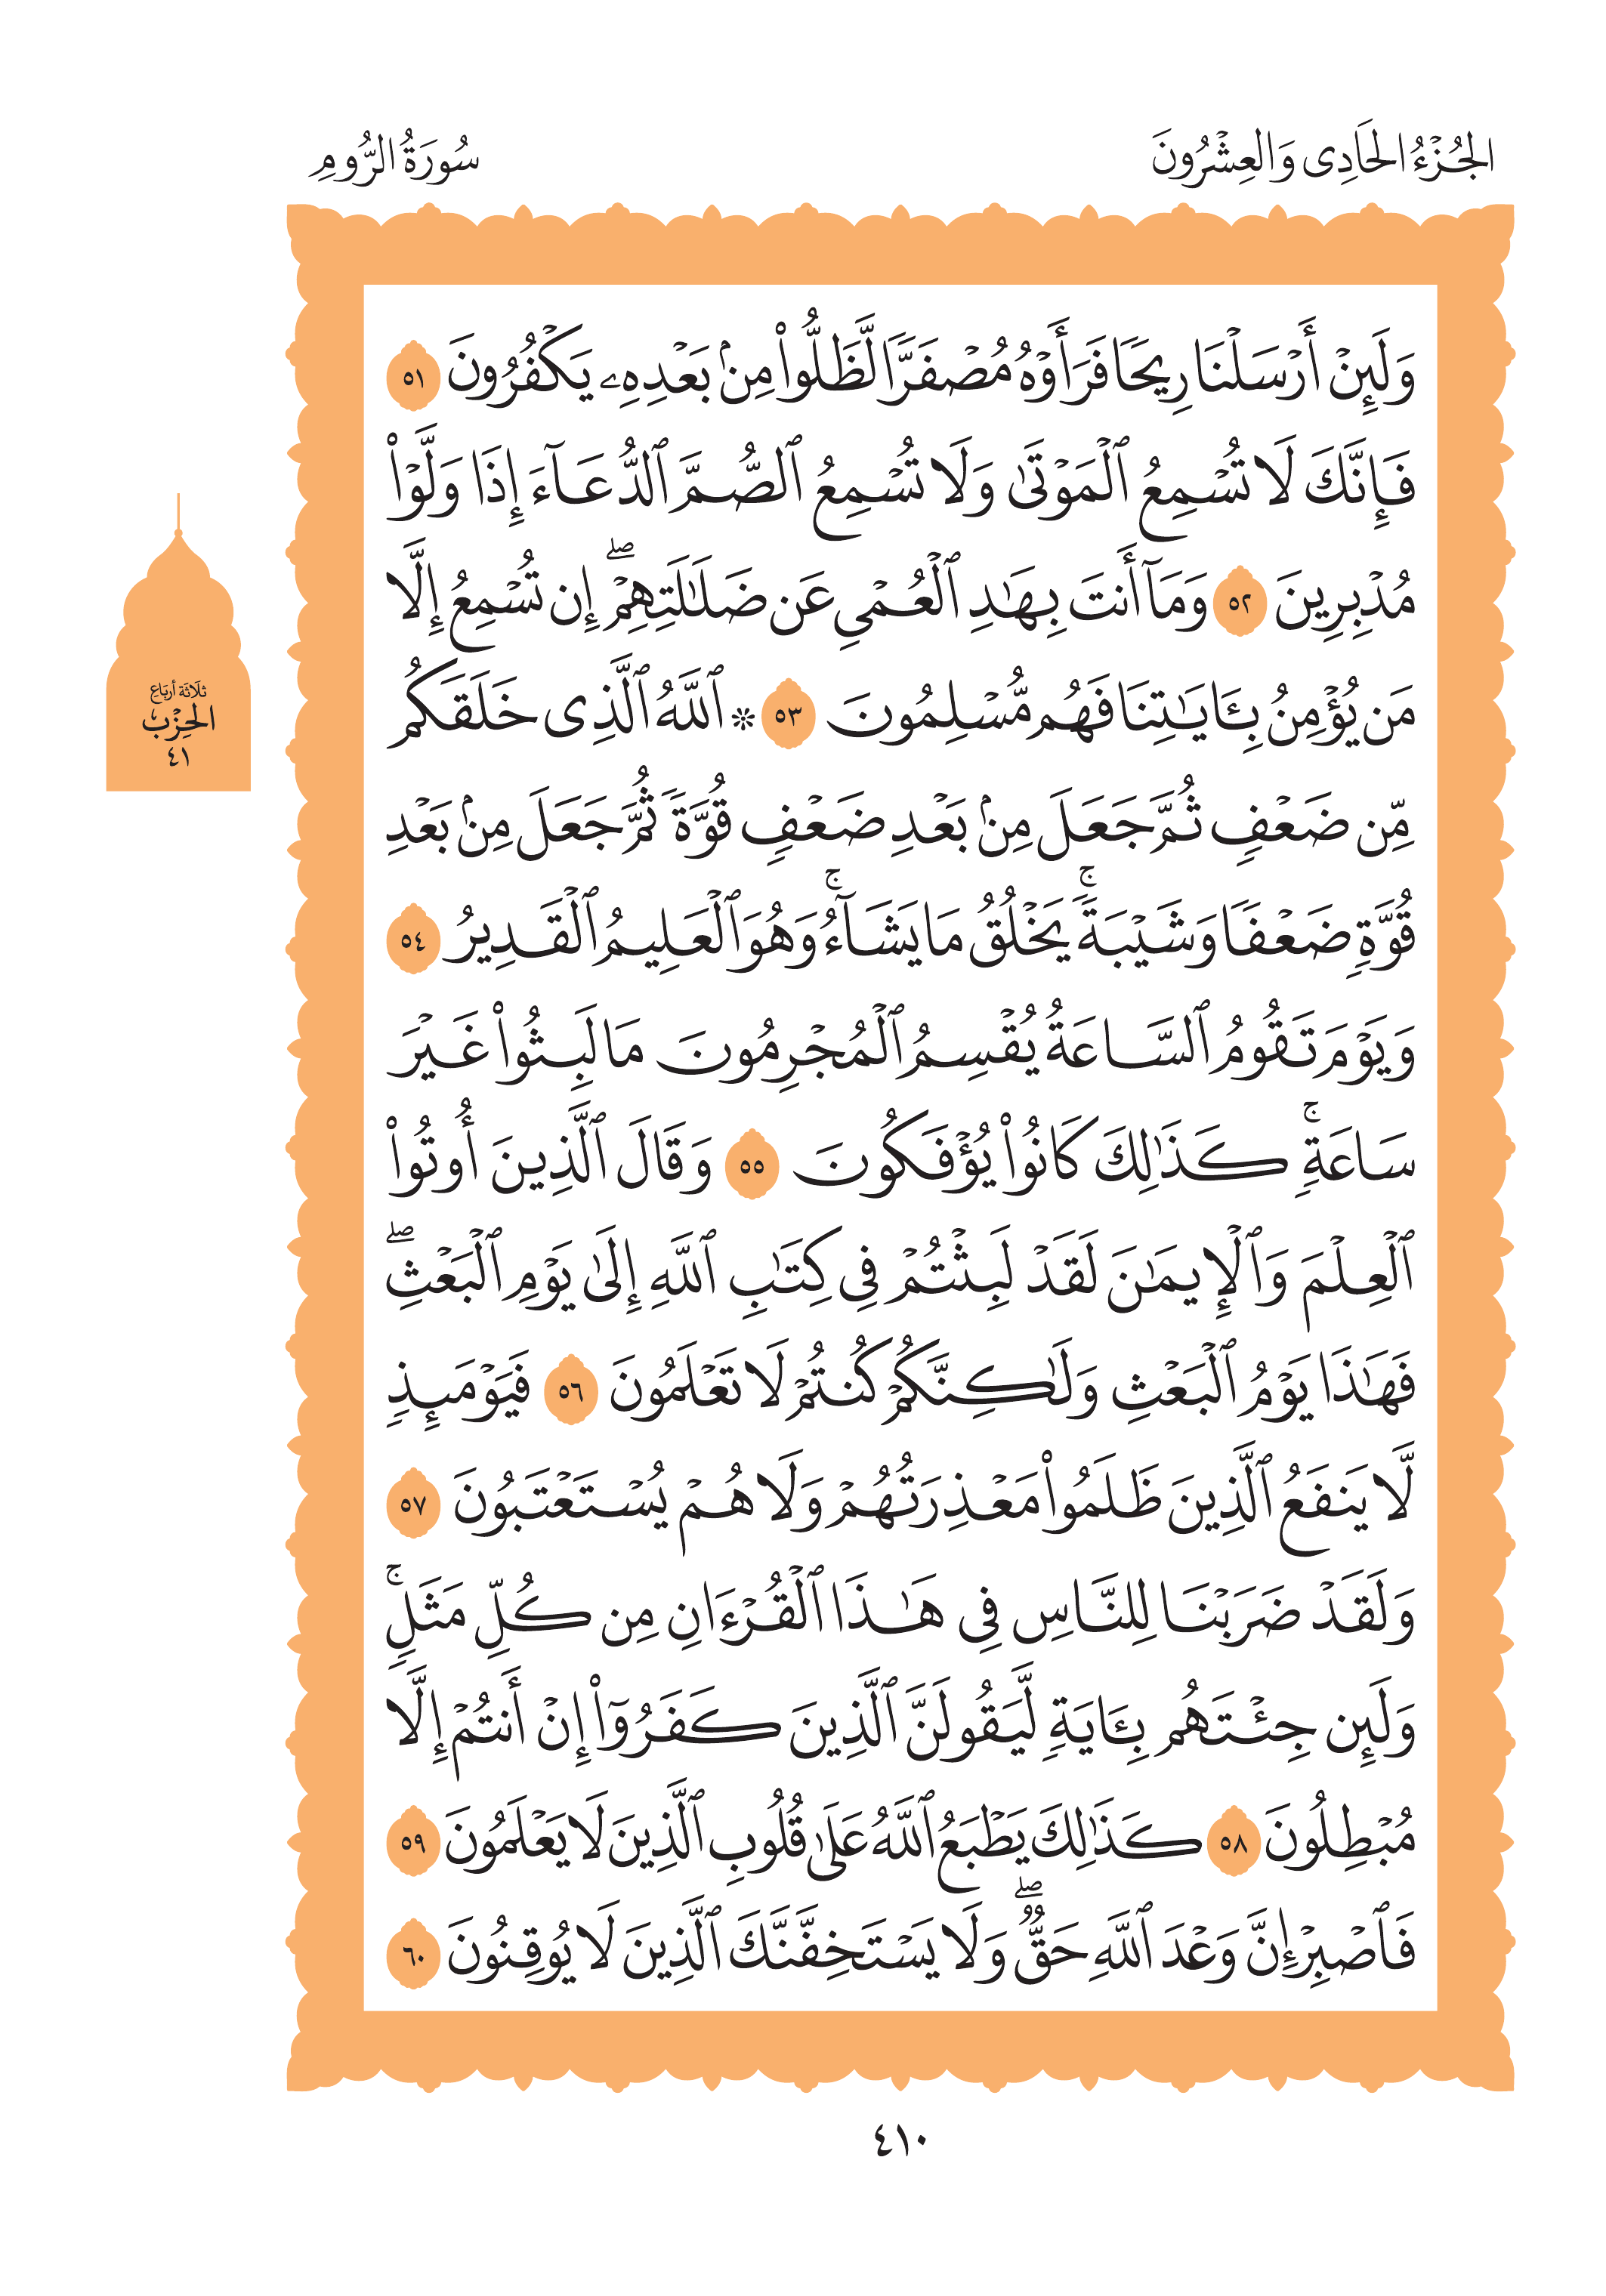 الجُزْءُ الحَادِى وَالعِشْرُونَ
سُورَةُ الرُّومِ
وَلَئِنْ أَرْسَلْنَا رِيحًا فَرَأَوْهُ مُصْفَرًّا لَّظَلُّوا۟ مِنۢ بَعْدِهِۦ يَكْفُرُونَ ٥١
فَإِنَّكَ لَا تُسْمِعُ ٱلْمَوْتَىٰ وَلَا تُسْمِعُ ٱلصُّمَّ ٱلدُّعَآءَ إِذَا وَلَّوْا۟
مُدْبِرِينَ ٥٢ وَمَآ أَنتَ بِهَٰدِ ٱلْعُمْيِ عَن ضَلَٰلَتِهِمْ ۖ إِن تُسْمِعُ إِلَّا
مَن يُؤْمِنُ بِـَٔايَٰتِنَا فَهُم مُّسْلِمُونَ ٥٣ ۞ ٱللَّهُ ٱلَّذِى خَلَقَكُم
مِّن ضَعْفٍ ثُمَّ جَعَلَ مِنۢ بَعْدِ ضَعْفٍ قُوَّةً ثُمَّ جَعَلَ مِنۢ بَعْدِ
قُوَّةٍ ضَعْفًا وَشَيْبَةً ۚ يَخْلُقُ مَا يَشَآءُ ۚ وَهُوَ ٱلْعَلِيمُ ٱلْقَدِيرُ ٥٤
وَيَوْمَ تَقُومُ ٱلسَّاعَةُ يُقْسِمُ ٱلْمُجْرِمُونَ مَا لَبِثُوا۟ غَيْرَ
سَاعَةٍ ۚ كَذَٰلِكَ كَانُوا۟ يُؤْفَكُونَ ٥٥ وَقَالَ ٱلَّذِينَ أُوتُوا۟
ٱلْعِلْمَ وَٱلْإِيمَٰنَ لَقَدْ لَبِثْتُمْ فِى كِتَٰبِ ٱللَّهِ إِلَىٰ يَوْمِ ٱلْبَعْثِ ۖ
فَهَٰذَا يَوْمُ ٱلْبَعْثِ وَلَٰكِنَّكُمْ كُنتُمْ لَا تَعْلَمُونَ ٥٦ فَيَوْمَئِذٍ
لَّا يَنفَعُ ٱلَّذِينَ ظَلَمُوا۟ مَعْذِرَتُهُمْ وَلَا هُمْ يُسْتَعْتَبُونَ ٥٧
وَلَقَدْ ضَرَبْنَا لِلنَّاسِ فِى هَٰذَا ٱلْقُرْءَانِ مِن كُلِّ مَثَلٍ ۚ
وَلَئِن جِئْتَهُم بِـَٔايَةٍ لَّيَقُولَنَّ ٱلَّذِينَ كَفَرُوٓا۟ إِنْ أَنتُمْ إِلَّا
مُبْطِلُونَ ٥٨ كَذَٰلِكَ يَطْبَعُ ٱللَّهُ عَلَىٰ قُلُوبِ ٱلَّذِينَ لَا يَعْلَمُونَ ٥٩
فَٱصْبِرْ إِنَّ وَعْدَ ٱللَّهِ حَقٌّ ۖ وَلَا يَسْتَخِفَّنَّكَ ٱلَّذِينَ لَا يُوقِنُونَ ٦٠
ثلَاثَة أربَاع
الحِزْب
٤١
٤١٠